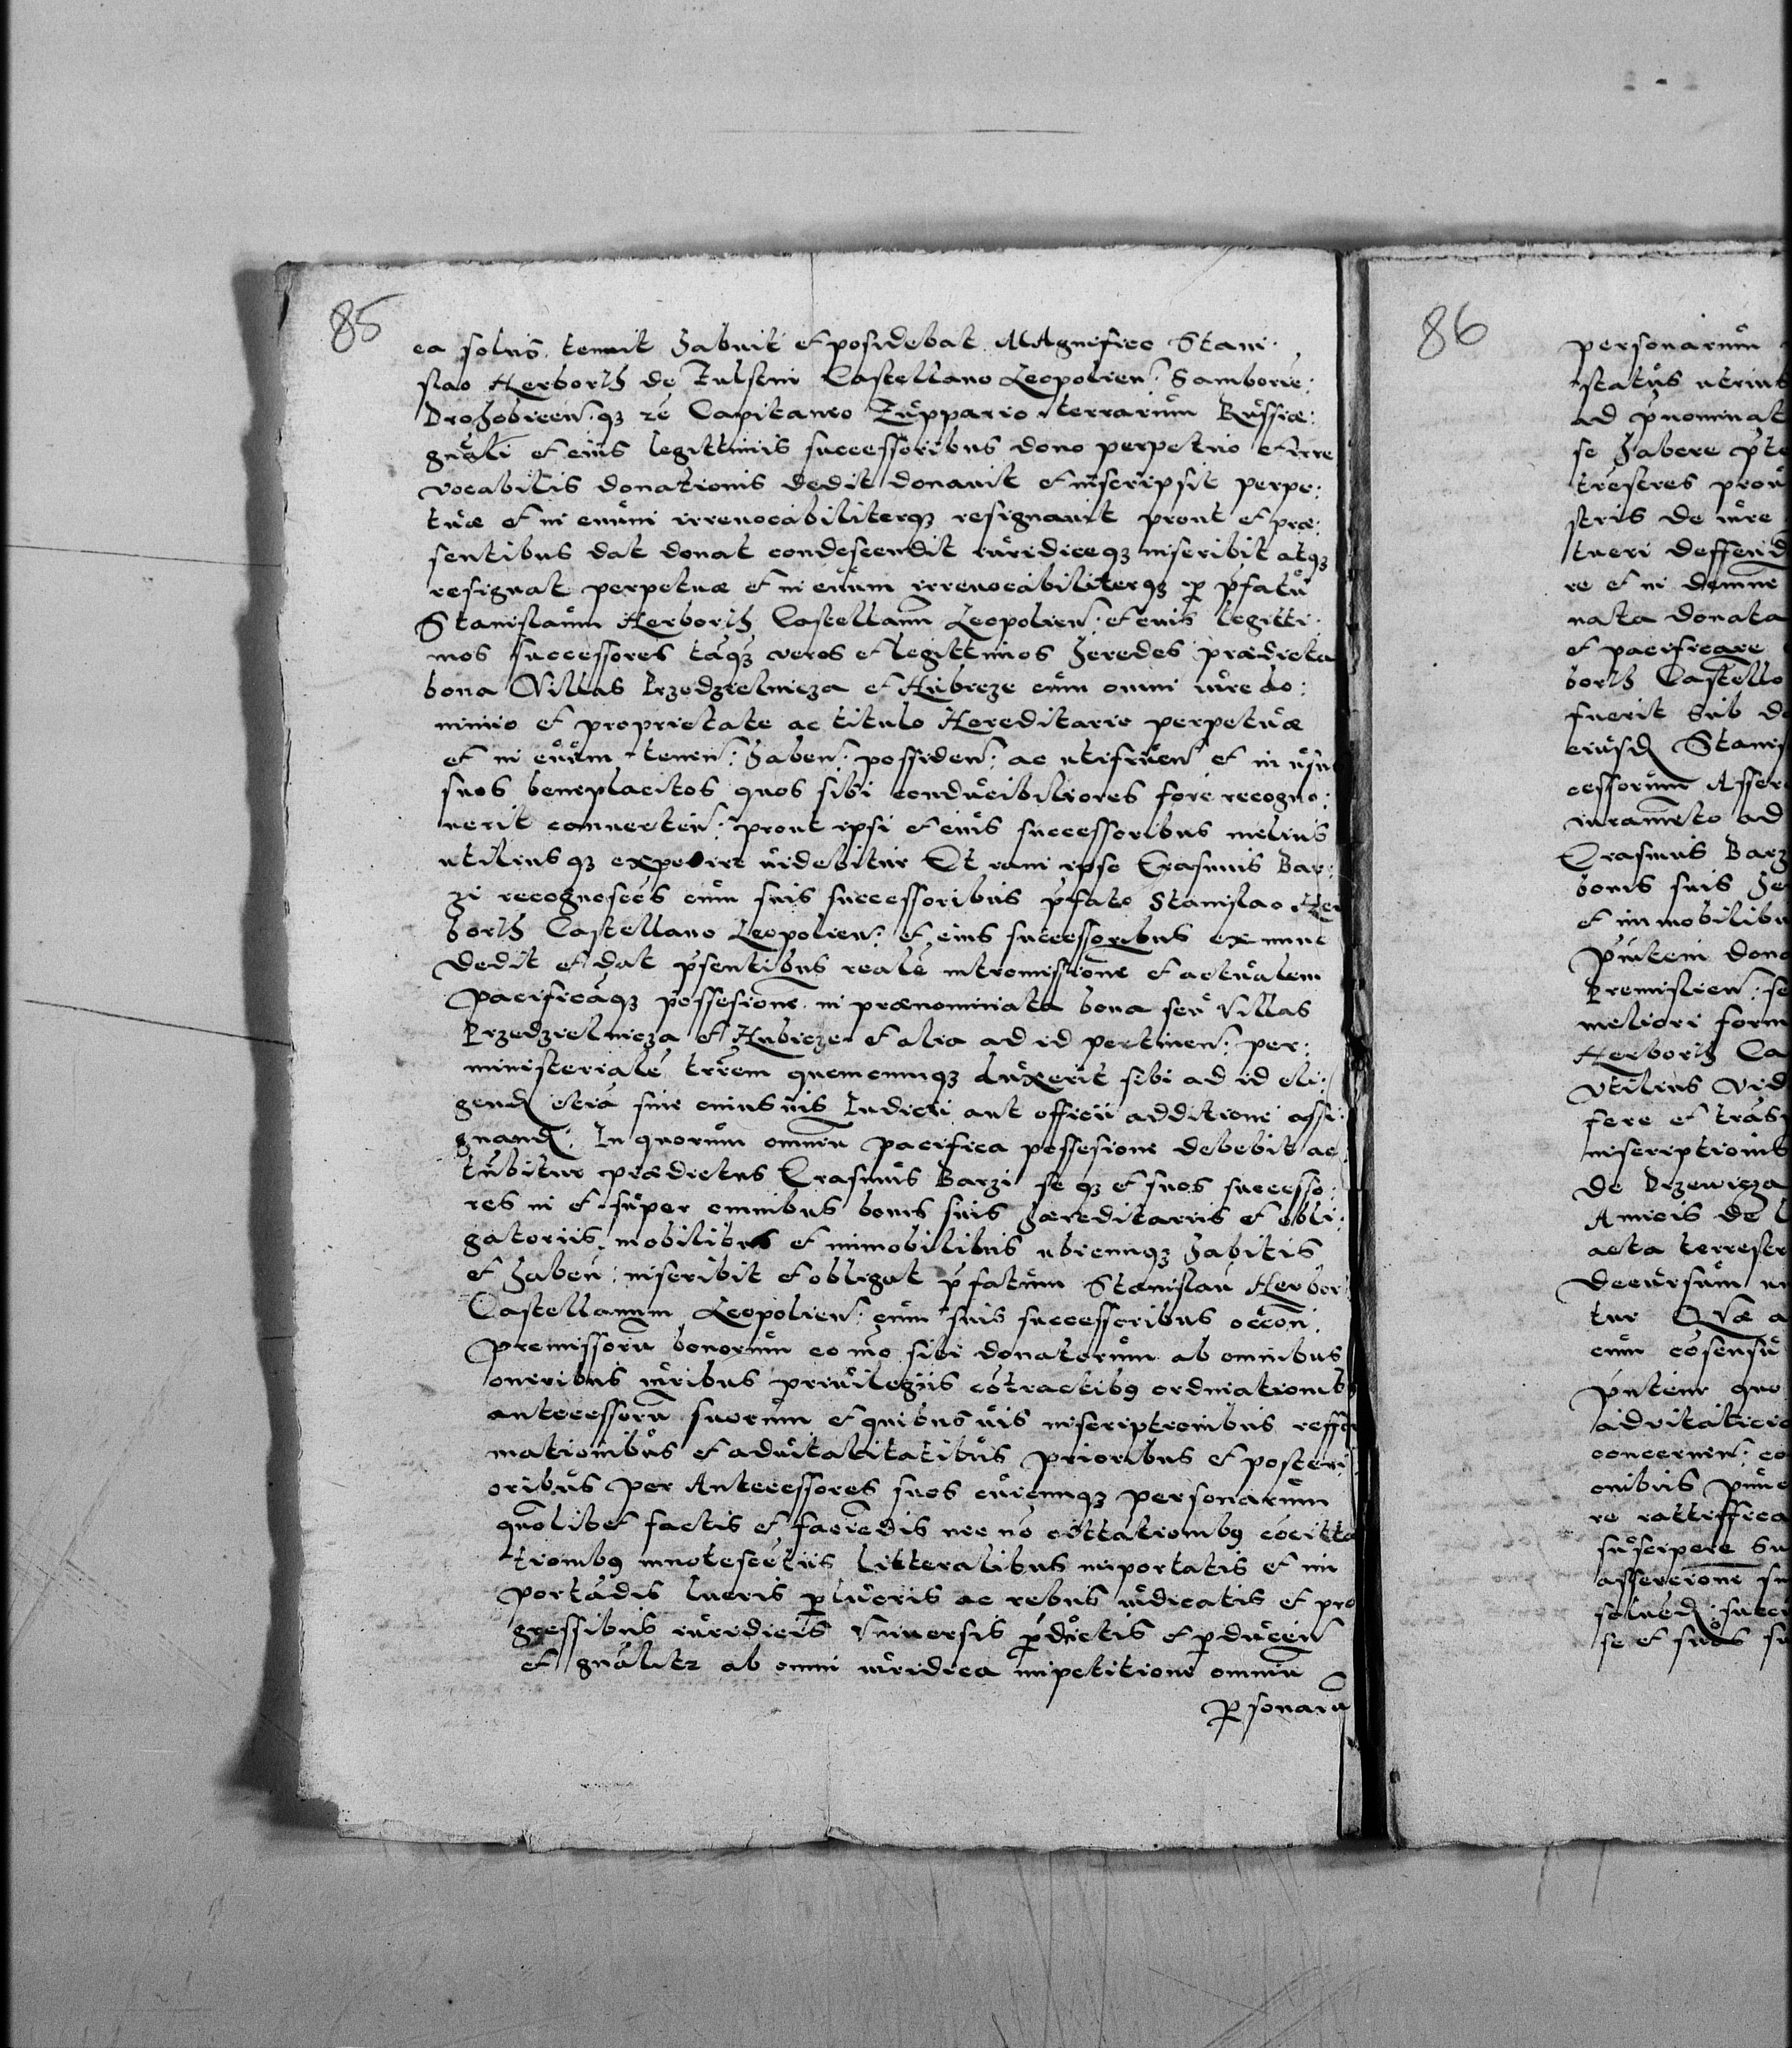 85
ea solus tenuit habuit et posidebat MAgnifico Stani:
slao Herborth de Fulstin Castellano Leopolien: Samborie:
Drohobiceen: q3 zc Capitaneo Zuppario terrarum Russiæ:
gnali et eius legittimis successoribus dono perpetuo et irre
vocabilis donationis dedit donavit et inscripsit perpe:
tuæ et in euum irreuocabiliterq3 resignauit prout et præ:
sentibus dat donat condescendit iuridiceq3 inscribit atq3
resignat perpetuæ et in euum irreuocabiliterq3 p pfatu
Stanislaum Herborth Castellanu Leopolien: et euis legitti:
mos successores taq3 veros et legittimos heredes prædicta
bona Villas Przedzielnicza et Hubicze cum omni iure do:
minio et proprietate ac titulo Hereditario perpetuæ
et in euum tenen: haben: possiden: ac utifruen et in usu
suos beneplacitos quos sibi conducibiliores fore recogno:
uerit conuerten: prout ipsi et eius successoribus melius
utilius q3 expedire uidebitur Et iam ipse Erasmus Bar:
zi recognosces cum suis successoribus pfato Stanislao Her
borth Castellano Leopolien: et eius successoribus ex nunc
dedit et dat psentibus reale intromissione et actualem
pacificaq3 possesione in prænominata bona seu Villas
Przedzielnicza et Hubicze et alia ad id pertinen: per:
ministeriale trrem quemcumq3 duxerit sibi ad id eli:
gend etia sine cuiusuis Iudicii aut officii additione assi:
gnand: In quorum omniu pacifica possesione debebit ac
tubitur prædictus Erasmus Barzi se q3 et suos successo:
res in et super omnibus bonis suis hæreditariis et obli:
gatoriis mobilibus et inmobilibus ubicumq3 habitis
et haben: inscribit et obligat pfatum Stanislau Herbor
Castellanum Leopolien: cum suis successoribus occon:
premissoru bonorum eo mo sibi donatorum ab omnibus
oneribus iuribus priuilegiis cotractib9 ordinationib9
antecessoru suorum et quibus uis inscriptionibus reffor
mationibus et aduitalitatibus prioribus et posteri:
oribus per Antecessores suos cuicumq3 personarum
quolibet factis et faciedis nec no cittationib9 cocitta
tionib9 innotescetiis litteralibus inportatis et in
portadis lucris plucris ac rebus iudicatis et pro
gressibus iuridicis Vniuersis pductis et pducen
et gnalitr ab omni iuridica inpetitione omniu
Psonaru
86
personarum
status utrius
ad pnominat
se habere pte
trestres prou
stris de iure
tueri deffend
re et in demne
nata donata
et pacificare
borth Castello
fuerit sub
eiusd Stanis
cessorum Asser
iuramento ad
Erasmus Barz
bonis suis he
et inmobilibu
pntem dona
Premislien: se
meliori form
Herborth Ca
Vtilius vid
fere et tras
inscriptionib
de Brzewicza
Amicis de
acta terrestr
decursum
tur Quæ a
cum cosensu
pntem quo
aduitaticio
concernen: co
onibus pnne
re rattiffica
suscipere su
assercione su
soluend: succ
se et suos su